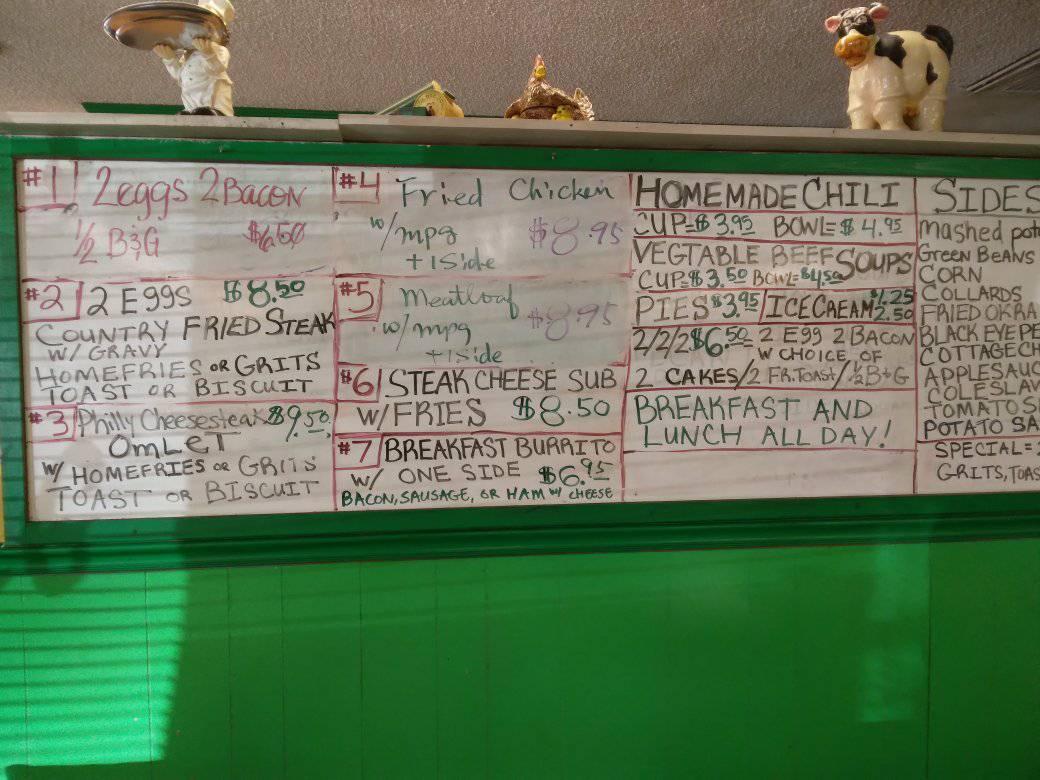 #1 2eggs 2 BACON
1/2 B&G $6.50
#2 2 EGGS $8.50
COUNTRY FRIED STEAK
W/ GRAVY
HOMEFRIES OR GRITS
TOAST OR BISCUIT
#3 Philly Cheesesteak $9.50
OMLET
W/ HOMEFRIES OR GRITS
TOAST OR BISCUIT
#4 Fried Chicken
w/mpg $8.95
+1Side
#5 Meatloaf
w/mpg $8.95
+1side
#6 STEAK CHEESE SUB
W/FRIES $8.50
#7 BREAKFAST BURRITO
W/ ONE SIDE $6.95
BACON, SAUSAGE, OR HAM W/ CHEESE
HOMEMADE CHILI
CUP=$3.95 BOWL=$4.95
VEGTABLE BEEF SOUPS
CUP=$3.50 BOWL=$4.50
PIES $3.95/ICECREAM $1.25
2.50
2/2/2 $6.50= 2 EGG 2 BACON
W CHOICE OF
2 CAKES/2 FR.TOAST/1/2 B+G
BREAKFAST AND
LUNCH ALL DAY!
SIDES
mashed pot
Green Beans
CORN
COLLARDS
FRIED OKRA
BLACK EYE PE
COTTAGE CH
APPLESAUC
COLESLAW
TOMATO S
POTATO SA
SPECIAL=
GRITS, TOAS